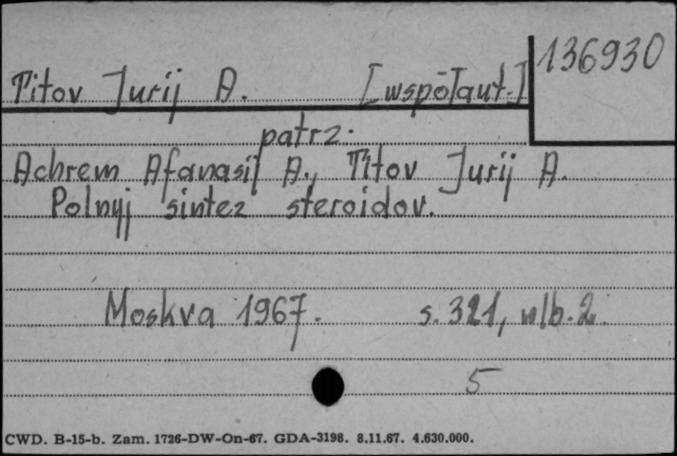 136930
Titov Jurij A. [współaut.]
patrz.
Achrem Afanasij A., Titov Jurij A.
Polnyj sintez steroidov.
Moskva 1967. s. 321, nlb. 2.
5
CWD. B-15-b. Zam. 1726-DW-On-67. GDA-3198. 8.11.67. 4.630.000.